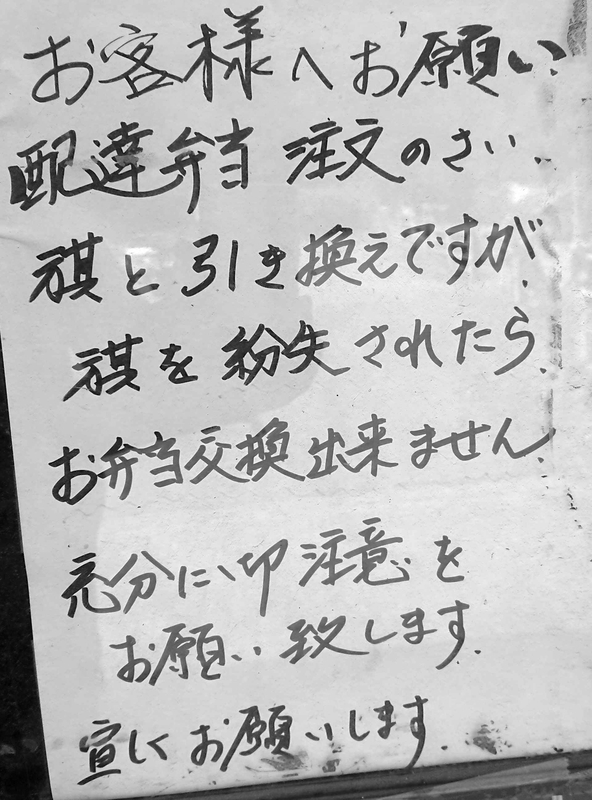 お客様へお願い
配達弁当 注文のさい、
旗と引き換えですが、
旗を紛失されたら、
お弁当交換出来ません。
充分に、御注意を
お願い致します。
宜しくお願いします。